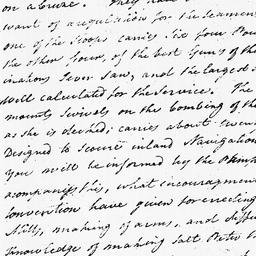 on a Cruze. They have
want of acquisition for the Seamen
one of the Sloops carries Six four Pou
the other four, of the best Guns of th
inations I ever saw, and the largest
well calculated for the Service. The
mounts Swivels on the Combing of th
as she is decked; carries about Seven
Designed to Scour inland Navigation
You will be informed by the Pamph
accompanys this, what encouragement
Convention have given for erecting
Mills, making of arms, and diffus
knowledge of making Salt Petre